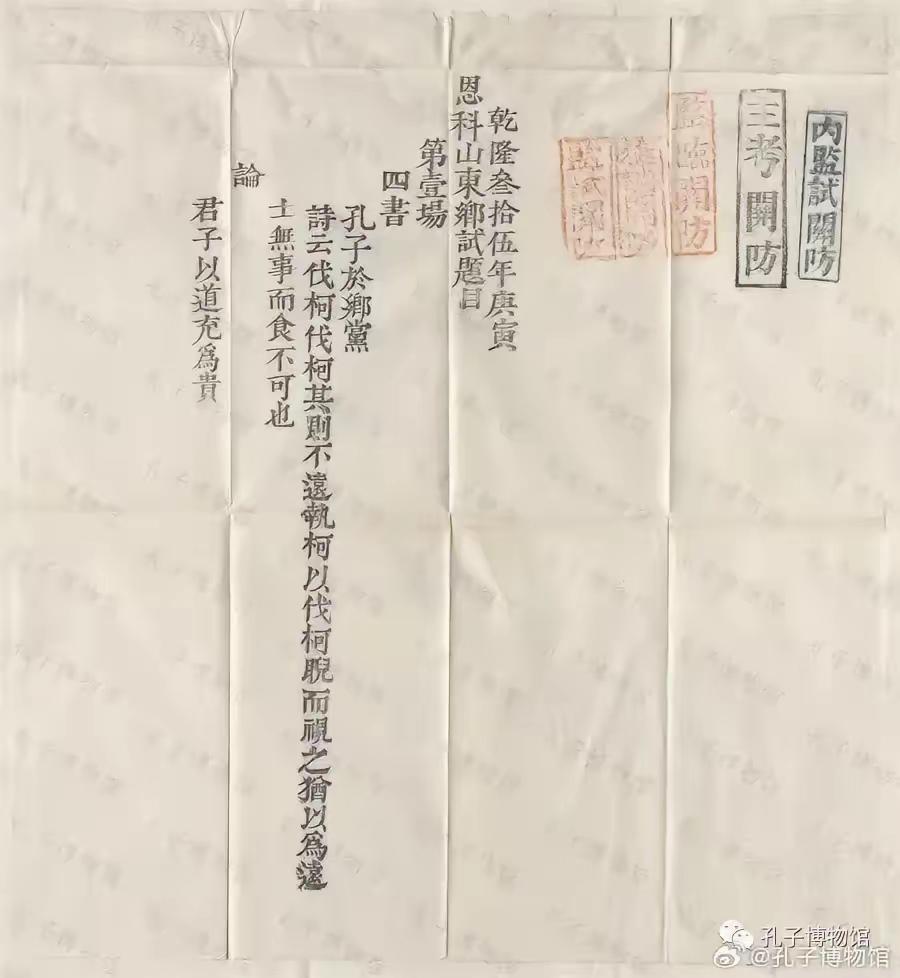 內監試關防
主考關防
監臨關防
監試關防
乾隆叁拾伍年庚寅
恩科山東鄉試題目
第壹場
四書
孔子於鄉黨
詩云伐柯伐柯其則不遠執柯以伐柯睨而視之猶以為遠
士無事而食不可也
論
君子以道充為貴
孔子博物馆
@孔子博物馆